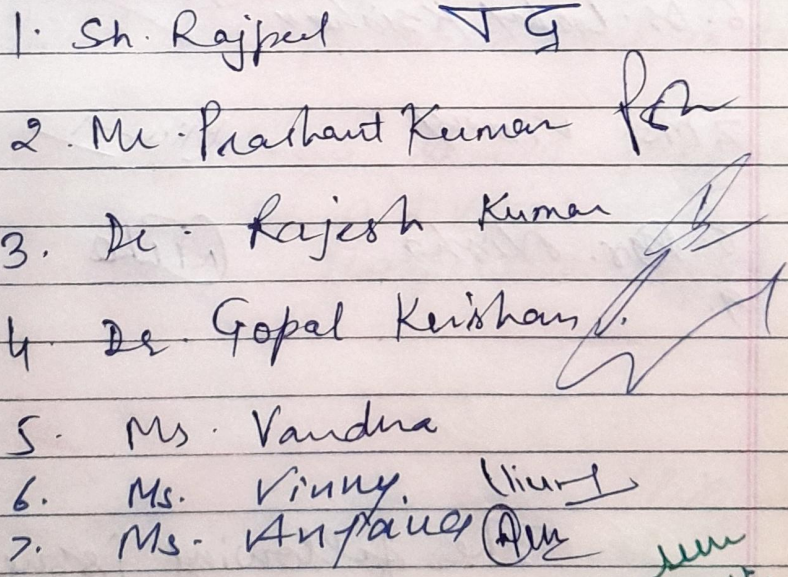 1. Sh. Rajpal
2. Mr. Prashant Kumar
3. Dr. Rajesh Kumar
4. Dr. Gopal Krishan
5. Ms. Vandna
6. Ms. Vinny.
7. Ms. Anpana